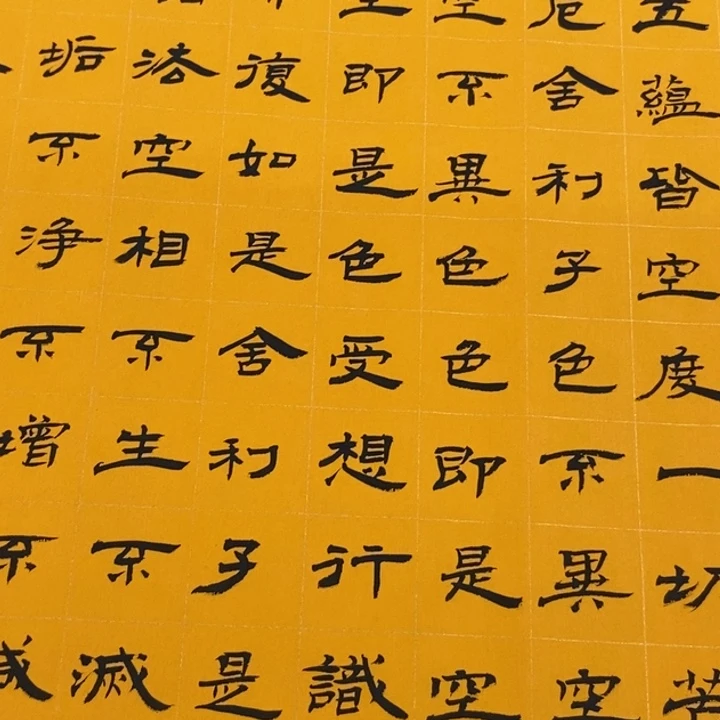 五蘊皆空度一切苦
厄舍利子色不異空
空不異色色即是空
空即是色受想行識
復如是舍利子是
法空相不生不滅
垢不淨不增不減